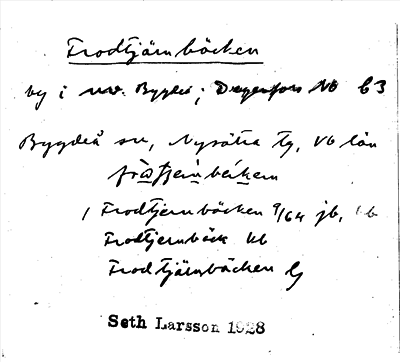 Frodtjärnbäcken
by i nv. Bygdeå; Degerfors NO 63
Bygdeå sn, Nysätra tg, Vb län
Frodtjernbäcken 9/64 jb,
Frodtjernbäck kb
Frodtjärnbäcken Gj
Seth Larsson 1928